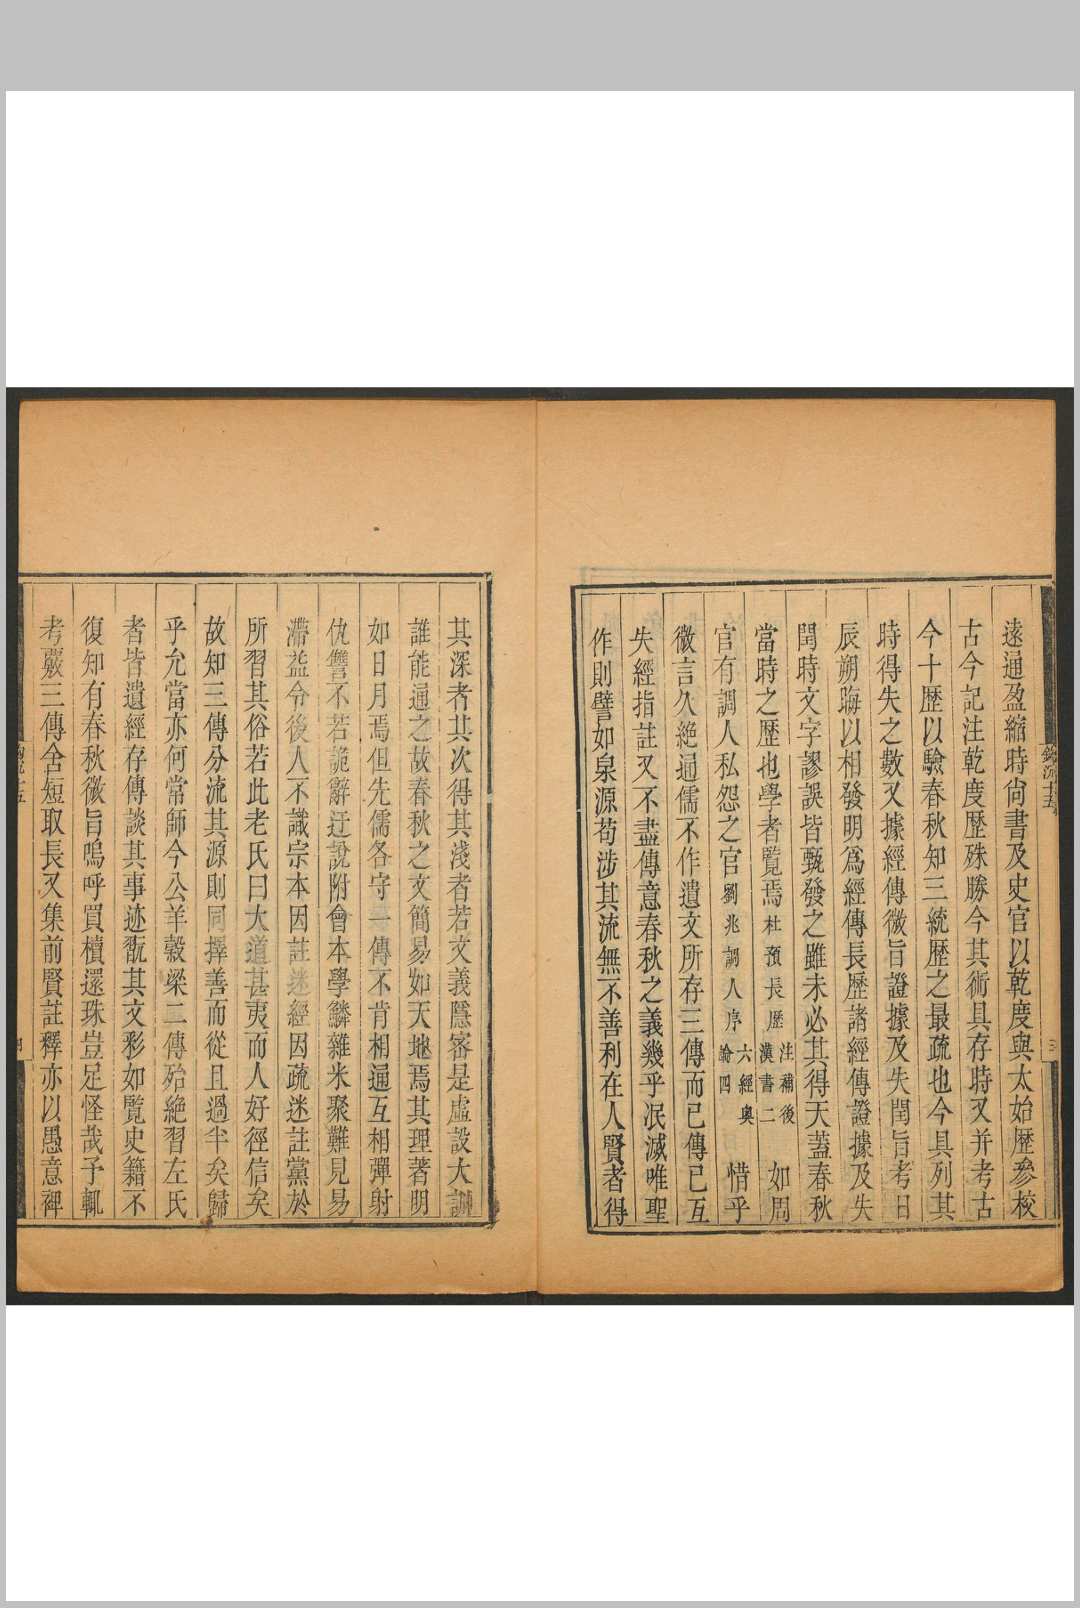 遠通盈縮時尚書及史官以乾度與太始歷參校
古今記注乾度歷殊勝今其術具存時又并考古
今十歷以驗春秋知三統歷之最疏也今具列其
時得失之數又據經傳微旨證據及失閏旨考日
辰朔晦以相發明為經傳長歷諸經傳證據及失
閏時文字謬誤皆甄發之雖未必其得天蓋春秋
當時之歷也學者覽焉杜預長歷注補後漢書二如周
官有調人私怨之官劉兆調人序六經奧論四惜乎
微言久絕通儒不作遺文所存三傳而已傳已互
失經指註又不盡傳意春秋之義幾乎泯滅唯聖
作則譬如泉源苟涉其流無不善利在人賢者得
其深者其次得其淺者若文義隱密是虛設大訓
誰能通之故春秋之文簡易如天地焉其理著明
如日月焉但先儒各守一傳不肯相通互相彈射
仇讐不若詭辭迂說附會本學鱗雜米聚難見易
滯益令後人不識宗本因註迷經因疏迷註黨於
所習其俗若此老氏曰大道甚夷而人好徑信矣
故知三傳分流其源則同擇善而從且過半矣歸
乎允當亦何常師今公羊穀梁二傳殆絕習左氏
者皆遺經存傳談其事迹翫其文彩如覽史籍不
復知有春秋微旨嗚呼買櫝還珠豈足怪哉予輒
考覈三傳舍短取長又集前賢註釋亦以愚意裨